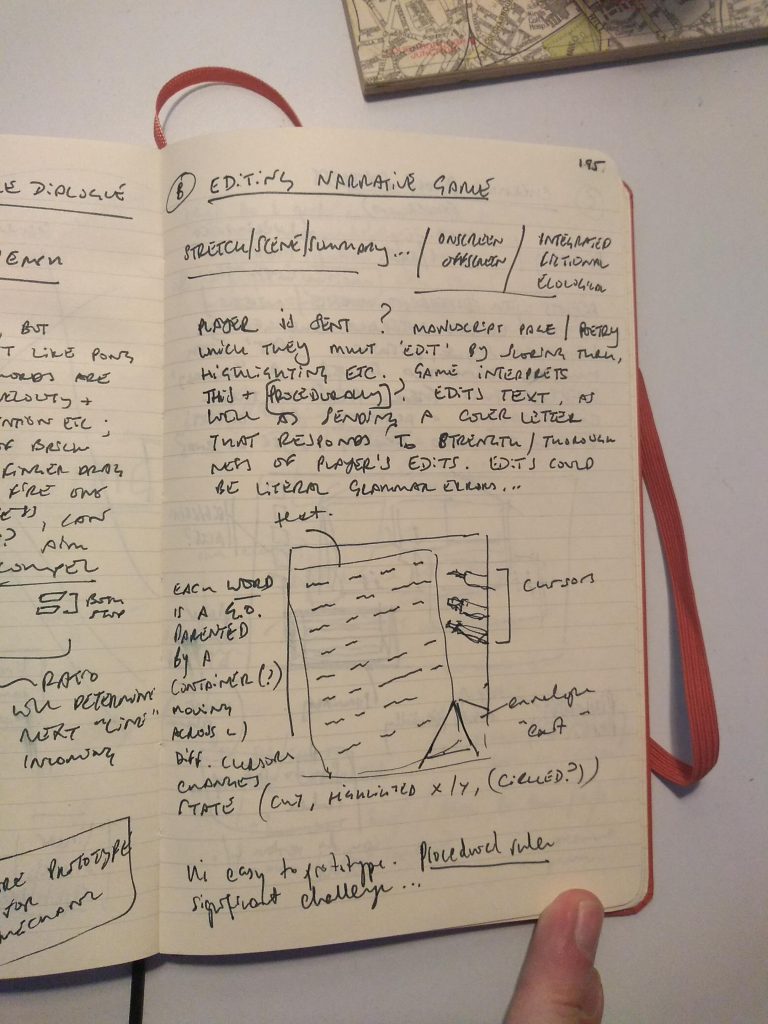 LE DIALOGUE
, BUT
T LIKE PONG
WORDS ARE
VELOCITY +
NTION ETC ;
OF BRICK
FINGER DRAG
FIRE ONE
, CAN
? AIM
BOTH
RATIO
WILL DETERMINE
NEXT "LINE"
INCOMING
RE PROTOTYPE
FOR
MECHANIC
195.
B EDITING NARRATIVE GAME
STRETCH/SCENE/SUMMARY... / ONSCREEN / INTEGRATED
OFFSCREEN FICTIONAL
PLAYER IS SENT ? MANUSCRIPT PAGE / POETRY
WHICH THEY MUST 'EDIT' BY SCORING THRU,
HIGHLIGHTING ETC. GAME INTERPRETS
THIS + [PROCEDURALLY]? EDITS TEXT, AS
WELL AS SENDING A COVER LETTER
THAT RESPONDS TO STRENGTH/THOROUGH
NESS OF PLAYER'S EDITS. EDITS COULD
BE LITERAL GRAMMAR ERRORS...
text.
EACH WORD
IS A G.O.
PARENTED
BY A
CONTAINER(?)
MOVING
ACROSS
DIFF. CURSOR
CHANGES
STATE (CUT, HIGHLIGHTED X/Y, (CIRCLED?))
CURSORS
envelope
easy to prototype. Procedural rules
significant challenge...